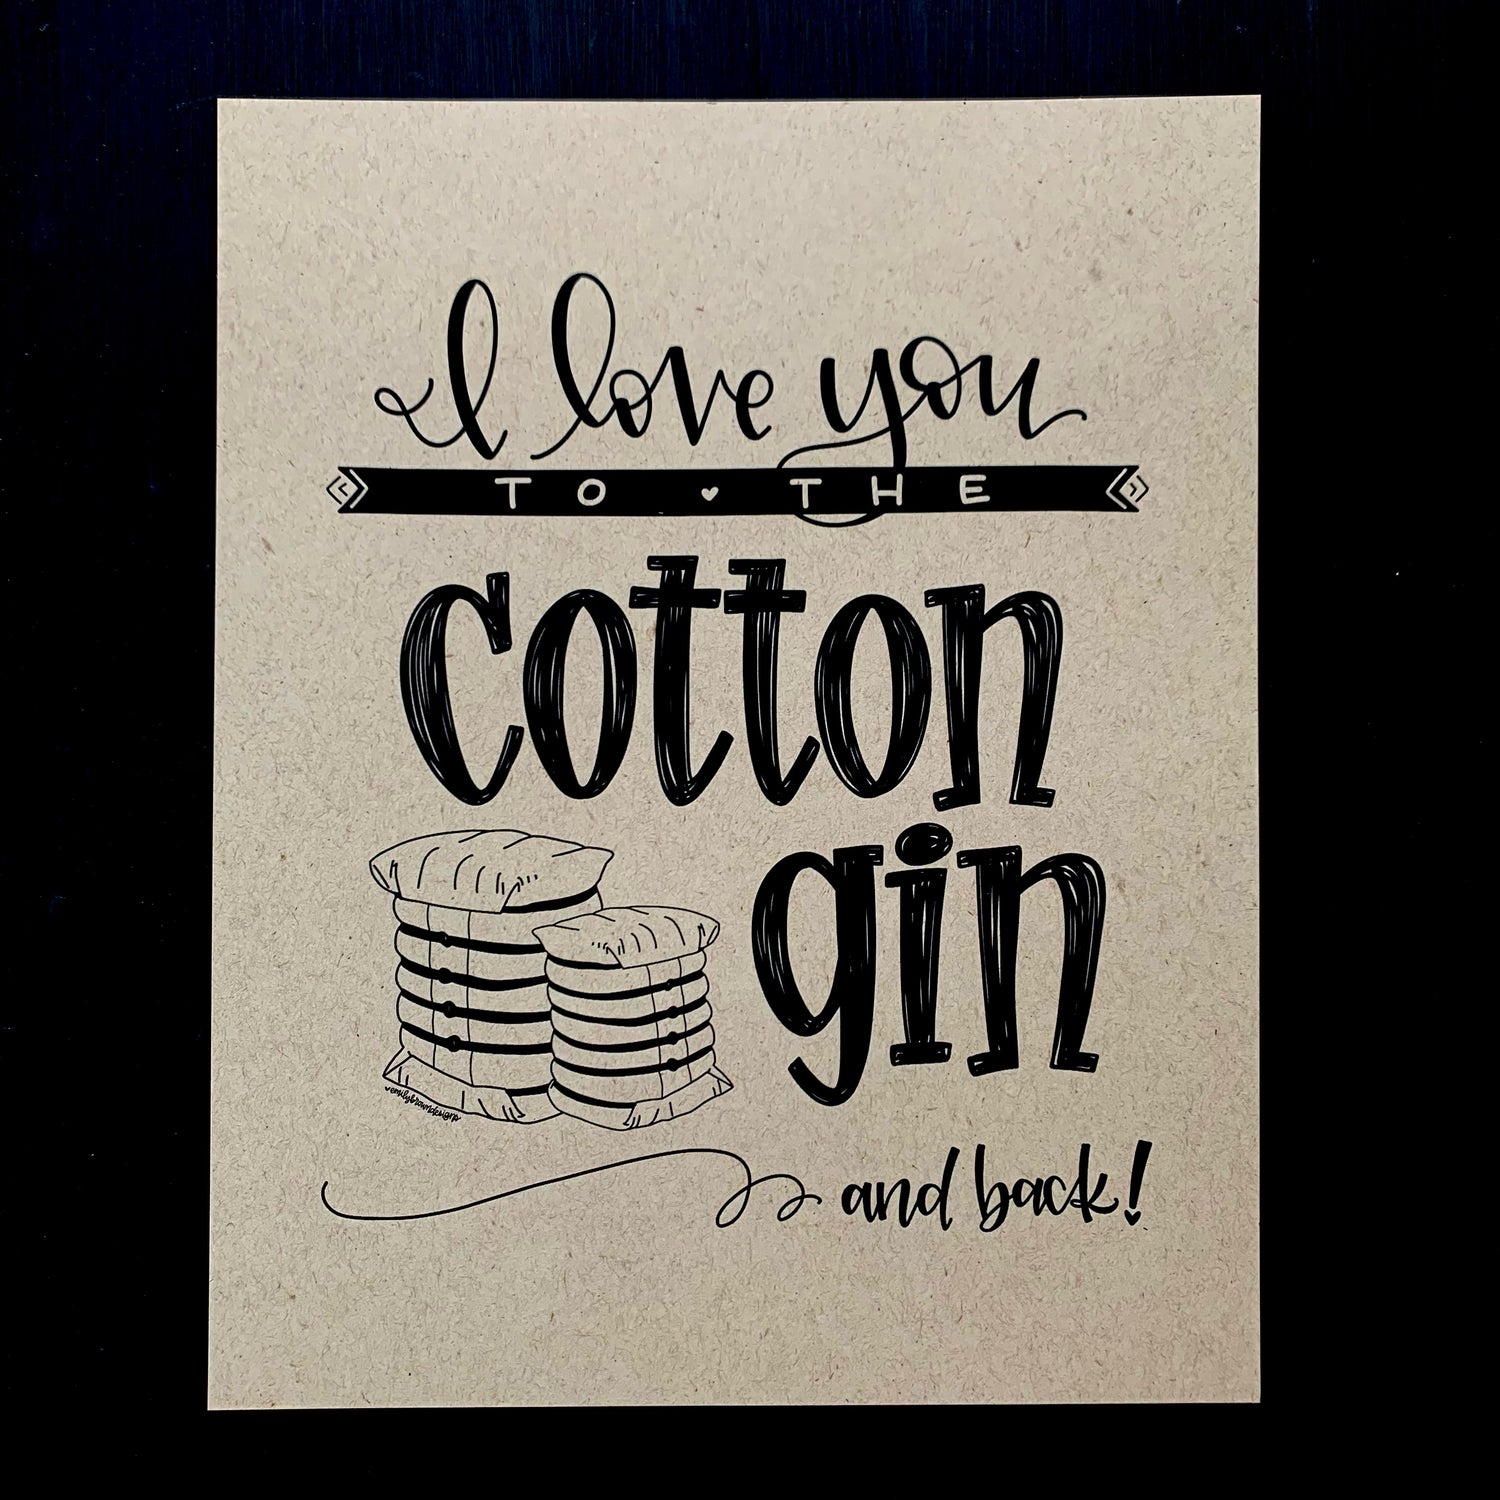 I love you
TO THE
cotton
gin
emilybrowndesigns
and back!